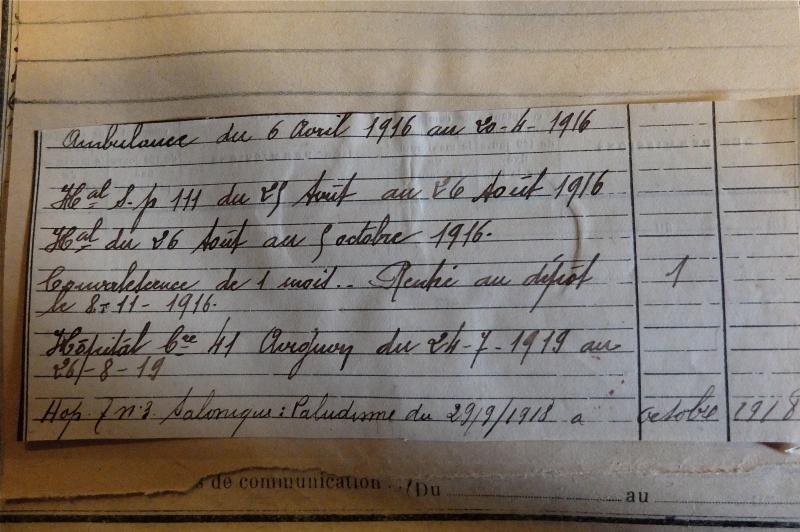 Ambulance du 6 Avril 1916 au 20-4-1916
Hal S.p 111 du 25 Août au 26 Août 1916
Hal du 26 Août au 5 octobre 1916.
Convalescence de 1 mois.. Rentré au dépôt 1
le 8-11-1916.
Hôpital Cre 41 Avignon du 24-7-1919 au
26-8-19
Hop. T n° 3 Salonique : Paludisme du 29/9/1918 a octobre 1918
s de communication . . (Du au